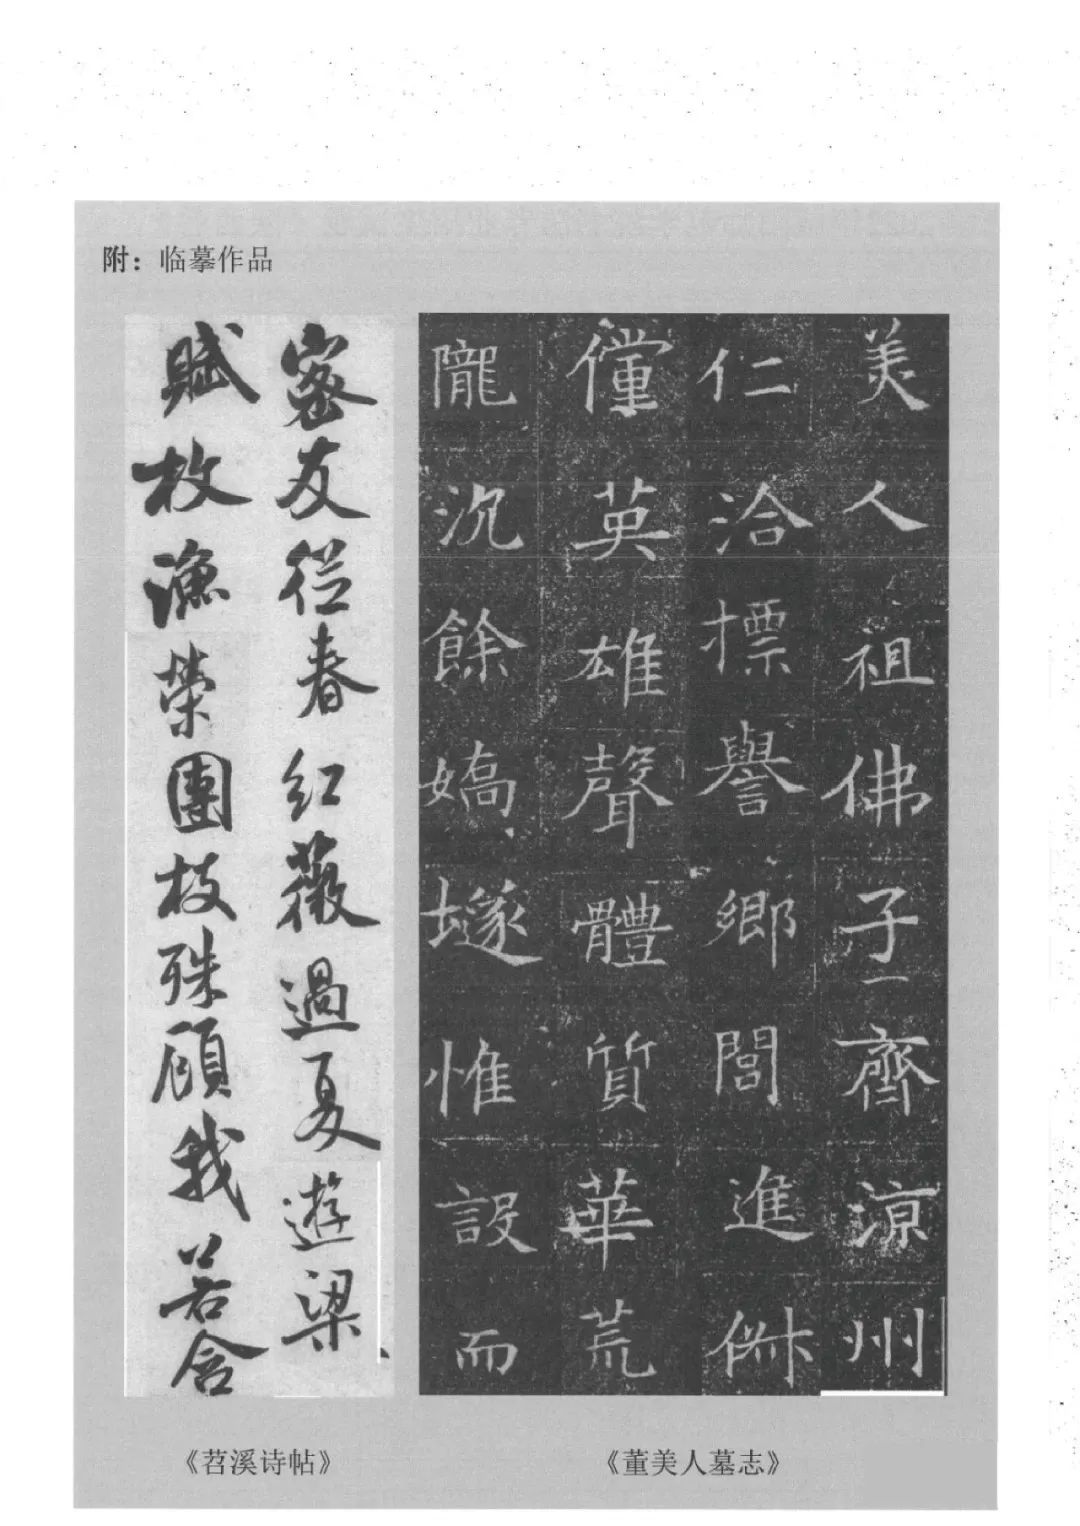 附：临摹作品
美人祖佛子齊涼州
仁洽標譽鄉閭進俶
儻英雄聲體質華荒
隴沉餘嬌㙩惟設而
密友從春紅薇過夏遊梁
賦枚漁榮團枝殊顧我若含
《苕溪诗帖》
《董美人墓志》